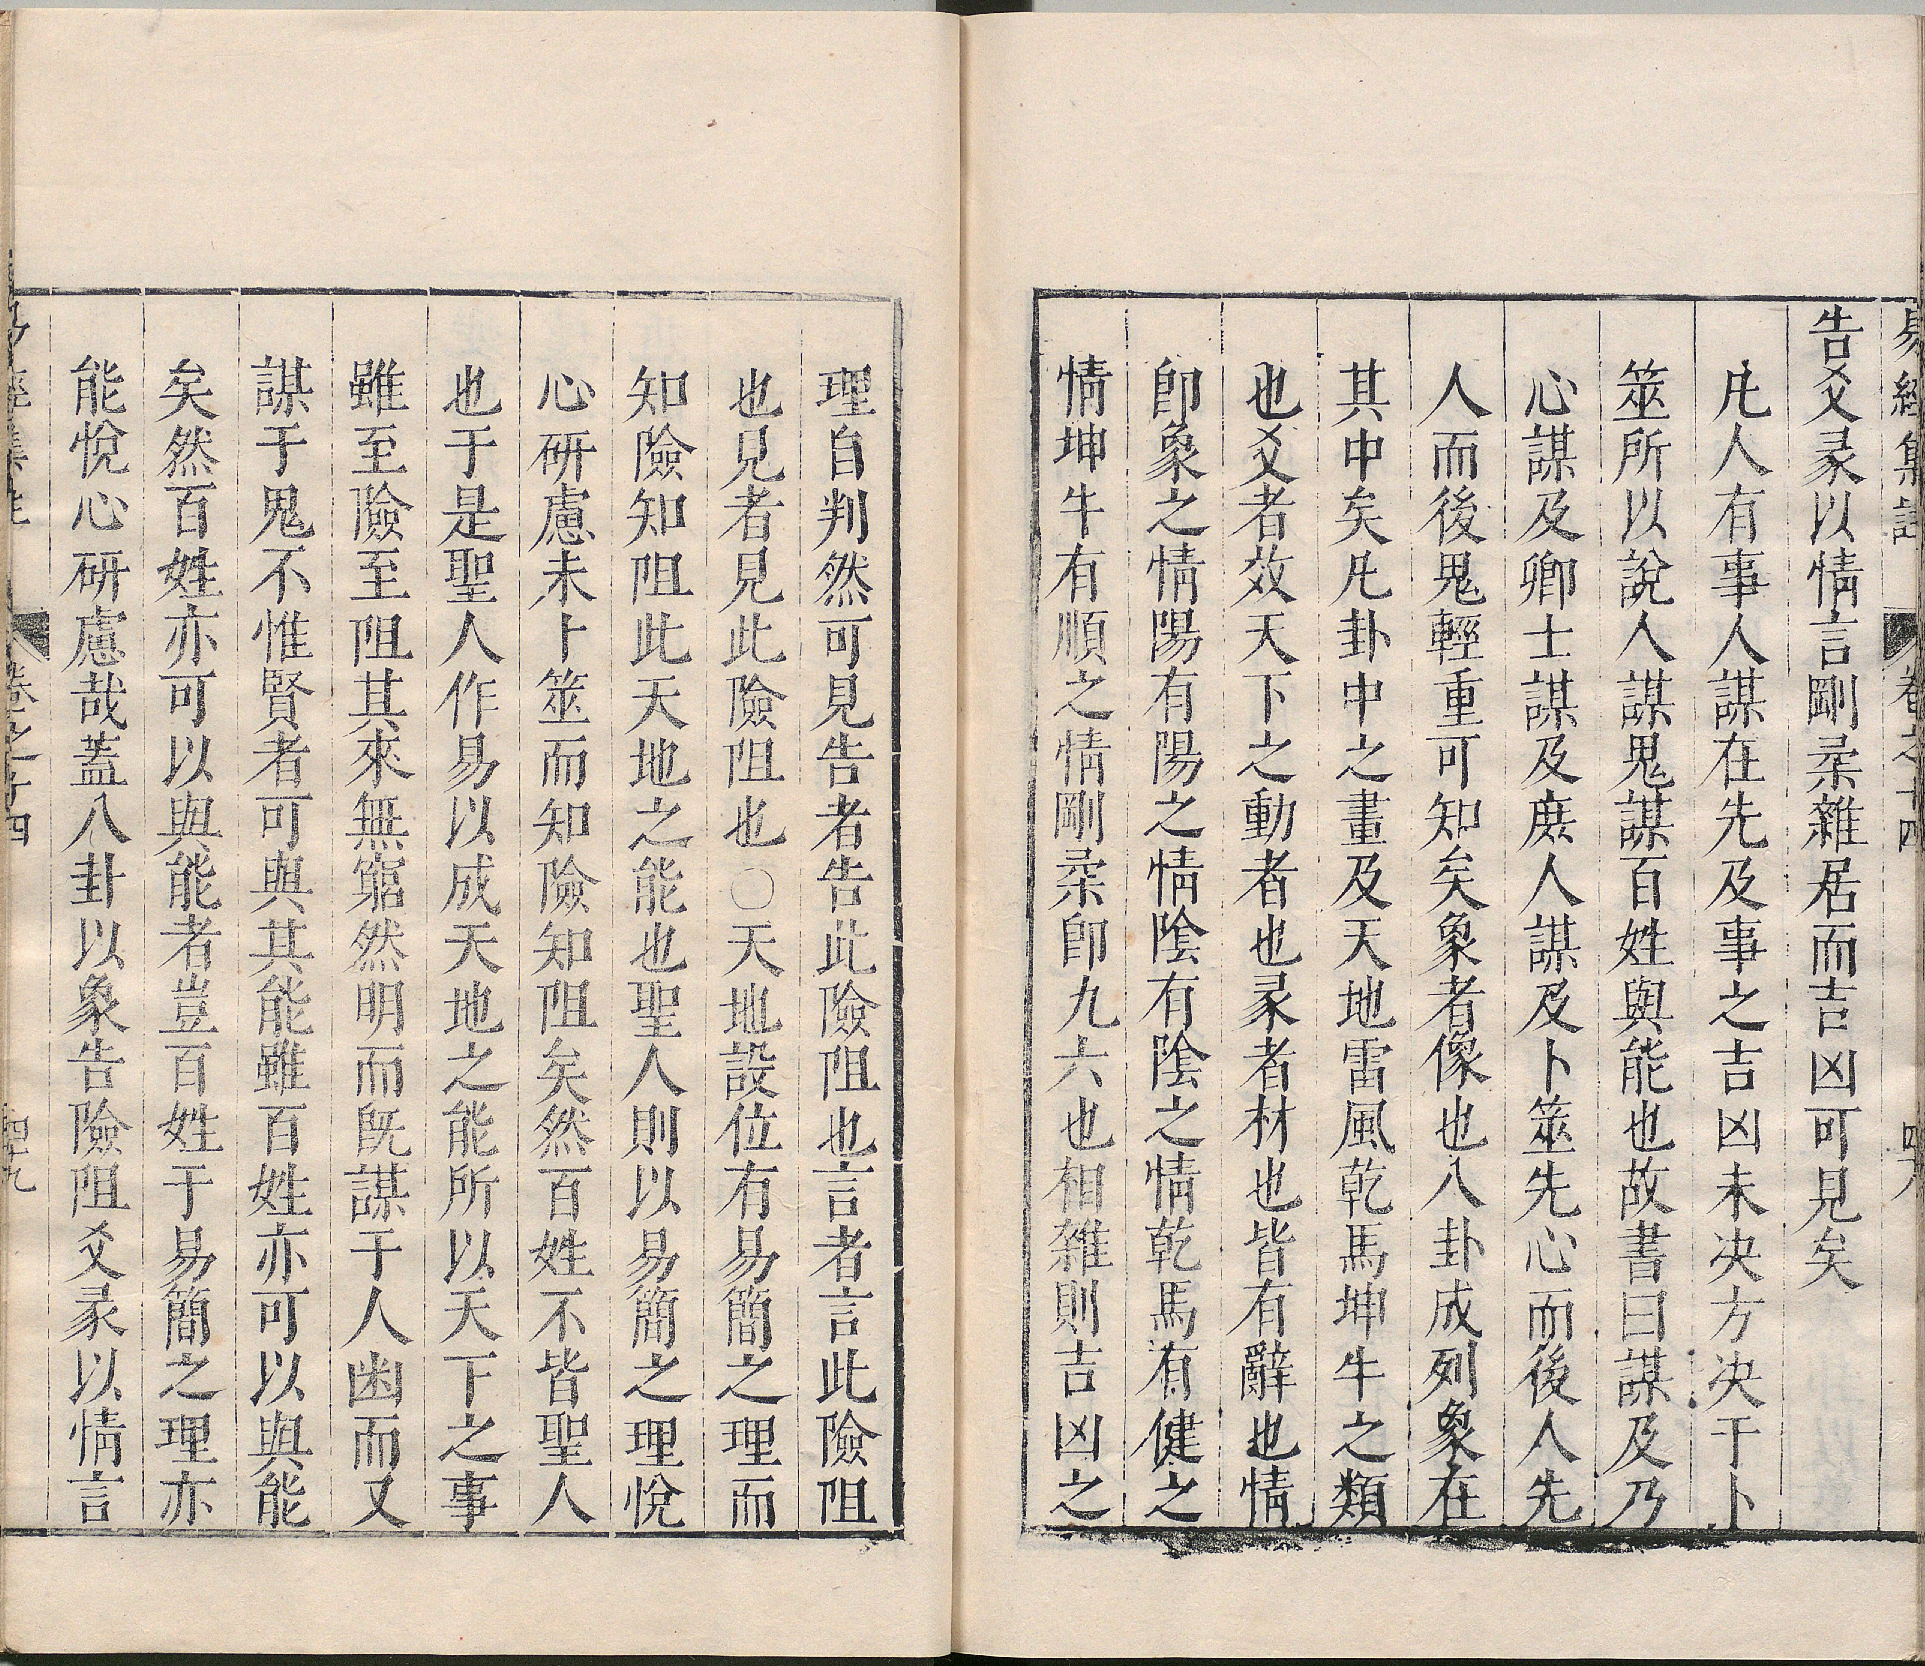 易經集註　卷之十四
告爻彖以情言剛柔雜居而吉凶可見矣
凡人有事人謀在先及事之吉凶未决方决于卜
筮所以說人謀鬼謀百姓與能也故書曰謀及乃
心謀及卿士謀及庶人謀及卜筮先心而後人先
人而後鬼輕重可知矣象者像也八卦成列象在
其中矣凡卦中之畫及天地雷風乾馬坤牛之類
也爻者效天下之動者也彖者材也皆有辭也情
卽象之情陽有陽之情陰有陰之情乾馬有健之
情坤牛有順之情剛柔卽九六也相雜則吉凶之
理自判然可見告者告此險阻也言者言此險阻
也見者見此險阻也○天地設位有易簡之理而
知險知阻此天地之能也聖人則以易簡之理悅
心研慮未卜筮而知險知阻矣然百姓不皆聖人
也于是聖人作易以成天地之能所以天下之事
雖至險至阻其來無窮然明而旣謀于人幽而又
謀于鬼不惟賢者可與其能雖百姓亦可以與能
矣然百姓亦可以與能者豈百姓于易簡之理亦
能悅心研慮哉蓋八卦以象告險阻爻彖以情言
卷之十四　四十九